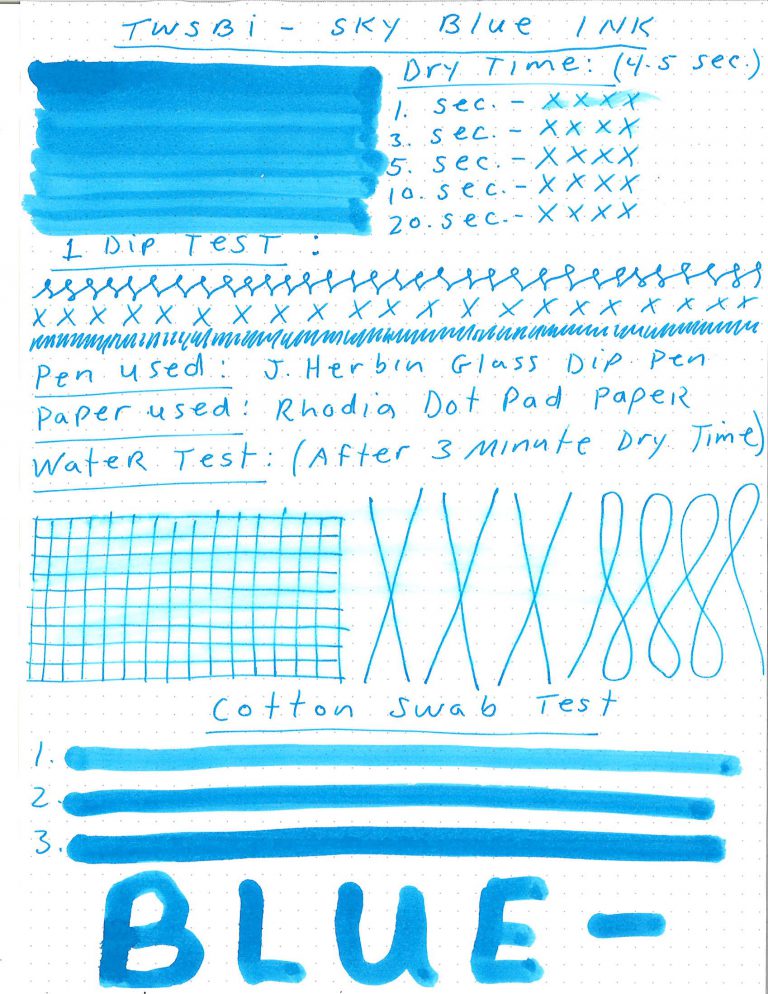 TWSBi - SKY Blue INK
Dry Time: (4.5 sec.)
1. sec. - X X X X
3. sec. - X X X X
5. sec. - X X X X
10. sec. - X X X X
20. sec. - X X X X
1 Dip TeST :
X X X X X X X X X X X X X X X X X X X
Pen used: J. Herbin Glass Dip Pen
Paper used: Rhodia Dot Pad Paper
Water Test: (After 3 Minute Dry Time)
X X X
Cotton Swab Test
1.
2.
3.
BLUE-